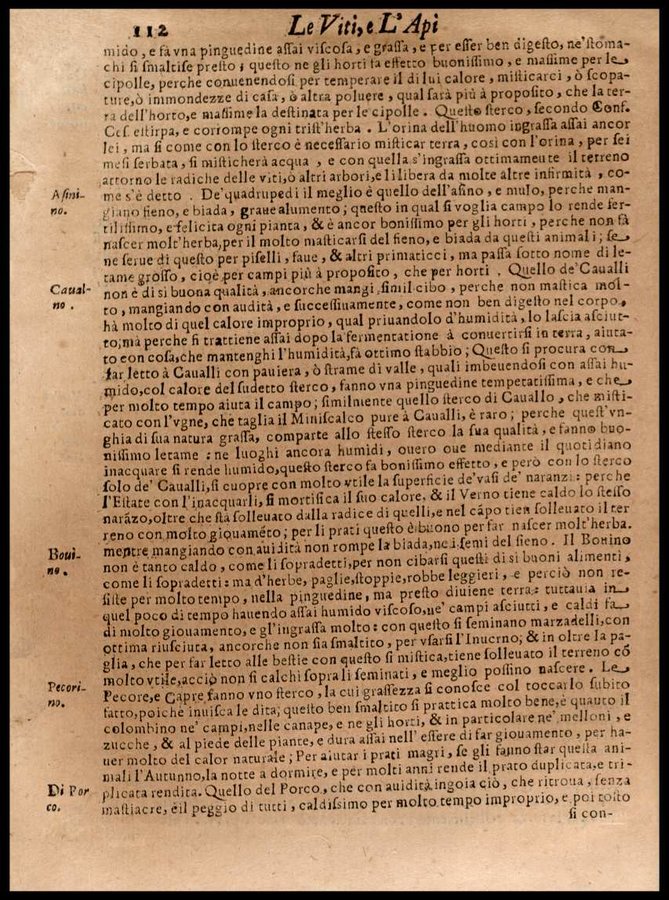 112 Le Viti, e L'Api
mido, e fà vna pinguedine assai viscosa, e grassa, e per esser ben digesto, ne' stoma-
chi si smaltise presto; questo ne gli horti fa effetto buonissimo, e massime per le
cipolle, perche conuenendosi per temperare il di lui calore, misticarci, ò scopa-
ture, ò immondezze di casa, ò altra poluere, qual sarà più à proposito, che la ter-
ra dell'horto, e massime la destinata per le cipolle. Questo sterco, secondo Conf.
Ces. estirpa, e corrompe ogni trist'herba. L'orina dell'huomo ingrassa assai ancor
lei, ma si come con lo sterco è necessario misticar terra, così con l'orina, per sei
mesi serbata, si misticherà acqua, e con quella s'ingrassa ottimamente il terreno
attorno le radiche delle viti, ò altri arbori, e li libera da molte altre infirmità, co-
Asini-
no.
me s'è detto. De' quadrupedi il meglio è quello dell'asino, e mulo, perche man-
giano fieno, e biada, graue alumento; questo in qual si voglia campo lo rende fer-
tilissimo, e felicita ogni pianta, & è ancor bonissimo per gli horti, perche non fà
nascer molt'herba, per il molto masticarsi del fieno, e biada da questi animali; se
ne serue di questo per piselli, faue, & altri primaticci, ma passa sotto nome di le-
tame grosso, cioè per campi più à proposito, che per horti. Quello de' Caualli
Caual-
no.
non è di sì buona qualità, ancorche mangi simil cibo, perche non mastica mol-
to, mangiando con audità, e successiuamente, come non ben digesto nel corpo,
hà molto di quel calore improprio, qual priuandolo d'humidità, lo lascia asciut-
to; mà perche si trattiene assai dopo la fermentatione à conuertirsi in terra, aiuta-
to con cosa, che mantenghi l'humidità, fà ottimo stabbio; Questo si procura con
far letto à Caualli con pauiera, ò strame di valle, quali imbeuendosi con assai hu-
mido, col calore del sudetto sterco, fanno vna pinguedine temperatissima, e che
per molto tempo aiuta il campo; similmente quello sterco di Cauallo, che misti-
cato con l'vgne, che taglia il Miniscalco pure à Caualli, è raro; perche quest'vn-
ghia di sua natura grassa, comparte allo stesso sterco la sua qualità, e fanno buo-
nissimo letame: ne luoghi ancora humidi, ouero oue mediante il quotidiano
inacquare si rende humido, questo sterco fa bonissimo effetto, e però con lo sterco
solo de' Caualli, si cuopre con molto vtile la superficie de' vasi de' naranzi: perche
l'Estate con l'inacquarli, si mortifica il suo calore, & il Verno tiene caldo lo stesso
narãzo, oltre che stà solleuato dalla radice di quelli, e nel cãpo tien solleuato il ter
reno con molto giouamẽto; per li prati questo è buono per far nascer molt'herba.
Boui-
no.
mentre mangiando con auidità non rompe la biada, ne i semi del fieno. Il Bonino
non è tanto caldo, come li sopradetti, per non cibarsi questi di sì buoni alimenti,
come li sopradetti: ma d'herbe, paglie, stoppie, robbe leggieri, e perciò non re-
siste per molto tempo, nella pinguedine, ma presto diuiene terra: tuttauia in
quel poco di tempo hauendo assai humido viscoso, ne' campi asciutti, e caldi fa
di molto giouamento, e gl'ingrassa molto: con questo si seminano marzadelli, con
ottima riusciuta, ancorche non sia smaltito, per vsarsi l'Inuerno; & in oltre la pa-
glia, che per far letto alle bestie con questo si mistica, tiene solleuato il terreno cõ
molto vtile, acciò non si calchi sopra li seminati, e meglio possino nascere. Le
Pecori-
no.
Pecore, e Capre fanno vno sterco, la cui grassezza si conosce col toccarlo subito
fatto, poiche inuisca le dita; questo ben smaltito si prattica molto bene, è quanto il
colombino ne' campi, nelle canape, e ne gli horti, & in particolare ne' melloni, e
zucche, & al piede delle piante, e dura assai nell' essere di far giouamento, per ha-
uer molto del calor naturale; Per aiutar i prati magri, se gli fanno star questa ani-
mali l'Autunno, la notte a dormire, e per molti anni rende il prato duplicata, e tri-
Di Por
co.
plicata rendita. Quello del Porco, che con auidità ingoia ciò, che ritroua, senza
mastiacre, è il peggio di tutti, caldissimo per molto tempo improprio, e poi tosto
si con-